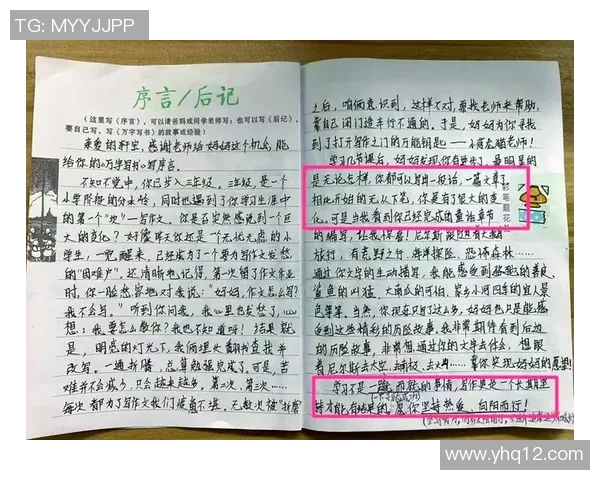 TG: MYYJJPP
序言/后记
(这里写《序言》,可以请爸妈或同学老师写;也可以写《后记》,
要自己写,写《万字写书》的故事或经验)
亲爱的轩宝,感谢老师给妈妈这个机会,能
给你的《万字写书》写序言。
不知不觉中,你已步入三年级。三年级,是一个
小学阶段的分水岭,同时也遇到了你学习生涯中
的第一个"坎"—写作文。你是否突然感觉到一个巨
大的变化?好像昨天你还是一个无忧无虑的小
学生,一觉醒来,已经成为了一个要为写作文发愁
的"困难户"。还清晰地记得,第一次留了作文作业
时,你一脸愁容地对我说:"妈妈,作文怎么写?
我不会写。"听到你问我,我心里也发愁了,
想,我要怎么教你?我也不知道呀!结果就
是,明亮的灯光下,我俩埋头翻书查找并
改写。一通折腾,总算勉强完成了,可是,苦
难并不会减少,只会越来越多,第二次、第三次……
每次都为了写作文我们疲惫不堪。无数次被"折磨"
之后,咱俩意识到,这样不对,要找老师来帮助,
靠自己闭门造车行不通的。于是,妈妈为你寻找
到了打开写作之门的万能钥匙——小荷老猫老师!
学习几节课后,妈妈发现你有变化了。最明显的
是无论怎样,你都可以写出一段话,一篇文章了。
相比开始的无从下笔,你是有了很大的变
化。可是当我看到你已经完成的童话章节
的编写,让我惊喜!尼尔斯
旅行,有荒野之行、海洋探险、恐怖森林……
通过你文字的生动描写,我能感受到
鲨鱼的凶猛、大南瓜的可怕、家乡小河四季的宜人景
色等等。当然,你现在只写了这么多,妈妈也只是能感
受到这些精彩的历险故事,我非常期待看到后边
的历险故事,非常想通过你的文字去体会,想跟
着尼尔斯去太空、去南极、去火山……靠你实现妈妈的愿望!
学习不是一蹴而就的事情,写作更是一个长期坚
持才能有结果的。愿你坚持热爱,向阳而行!
彩笔题花处
www.yhq12.com